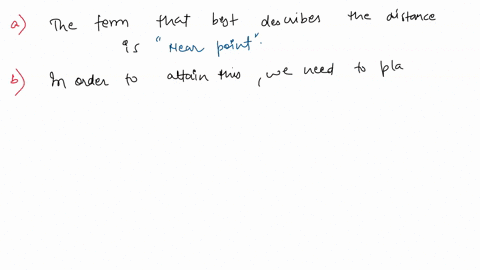 a) The term that best describes the distance
is "Near point".
b) In order to attain this, we need to pla